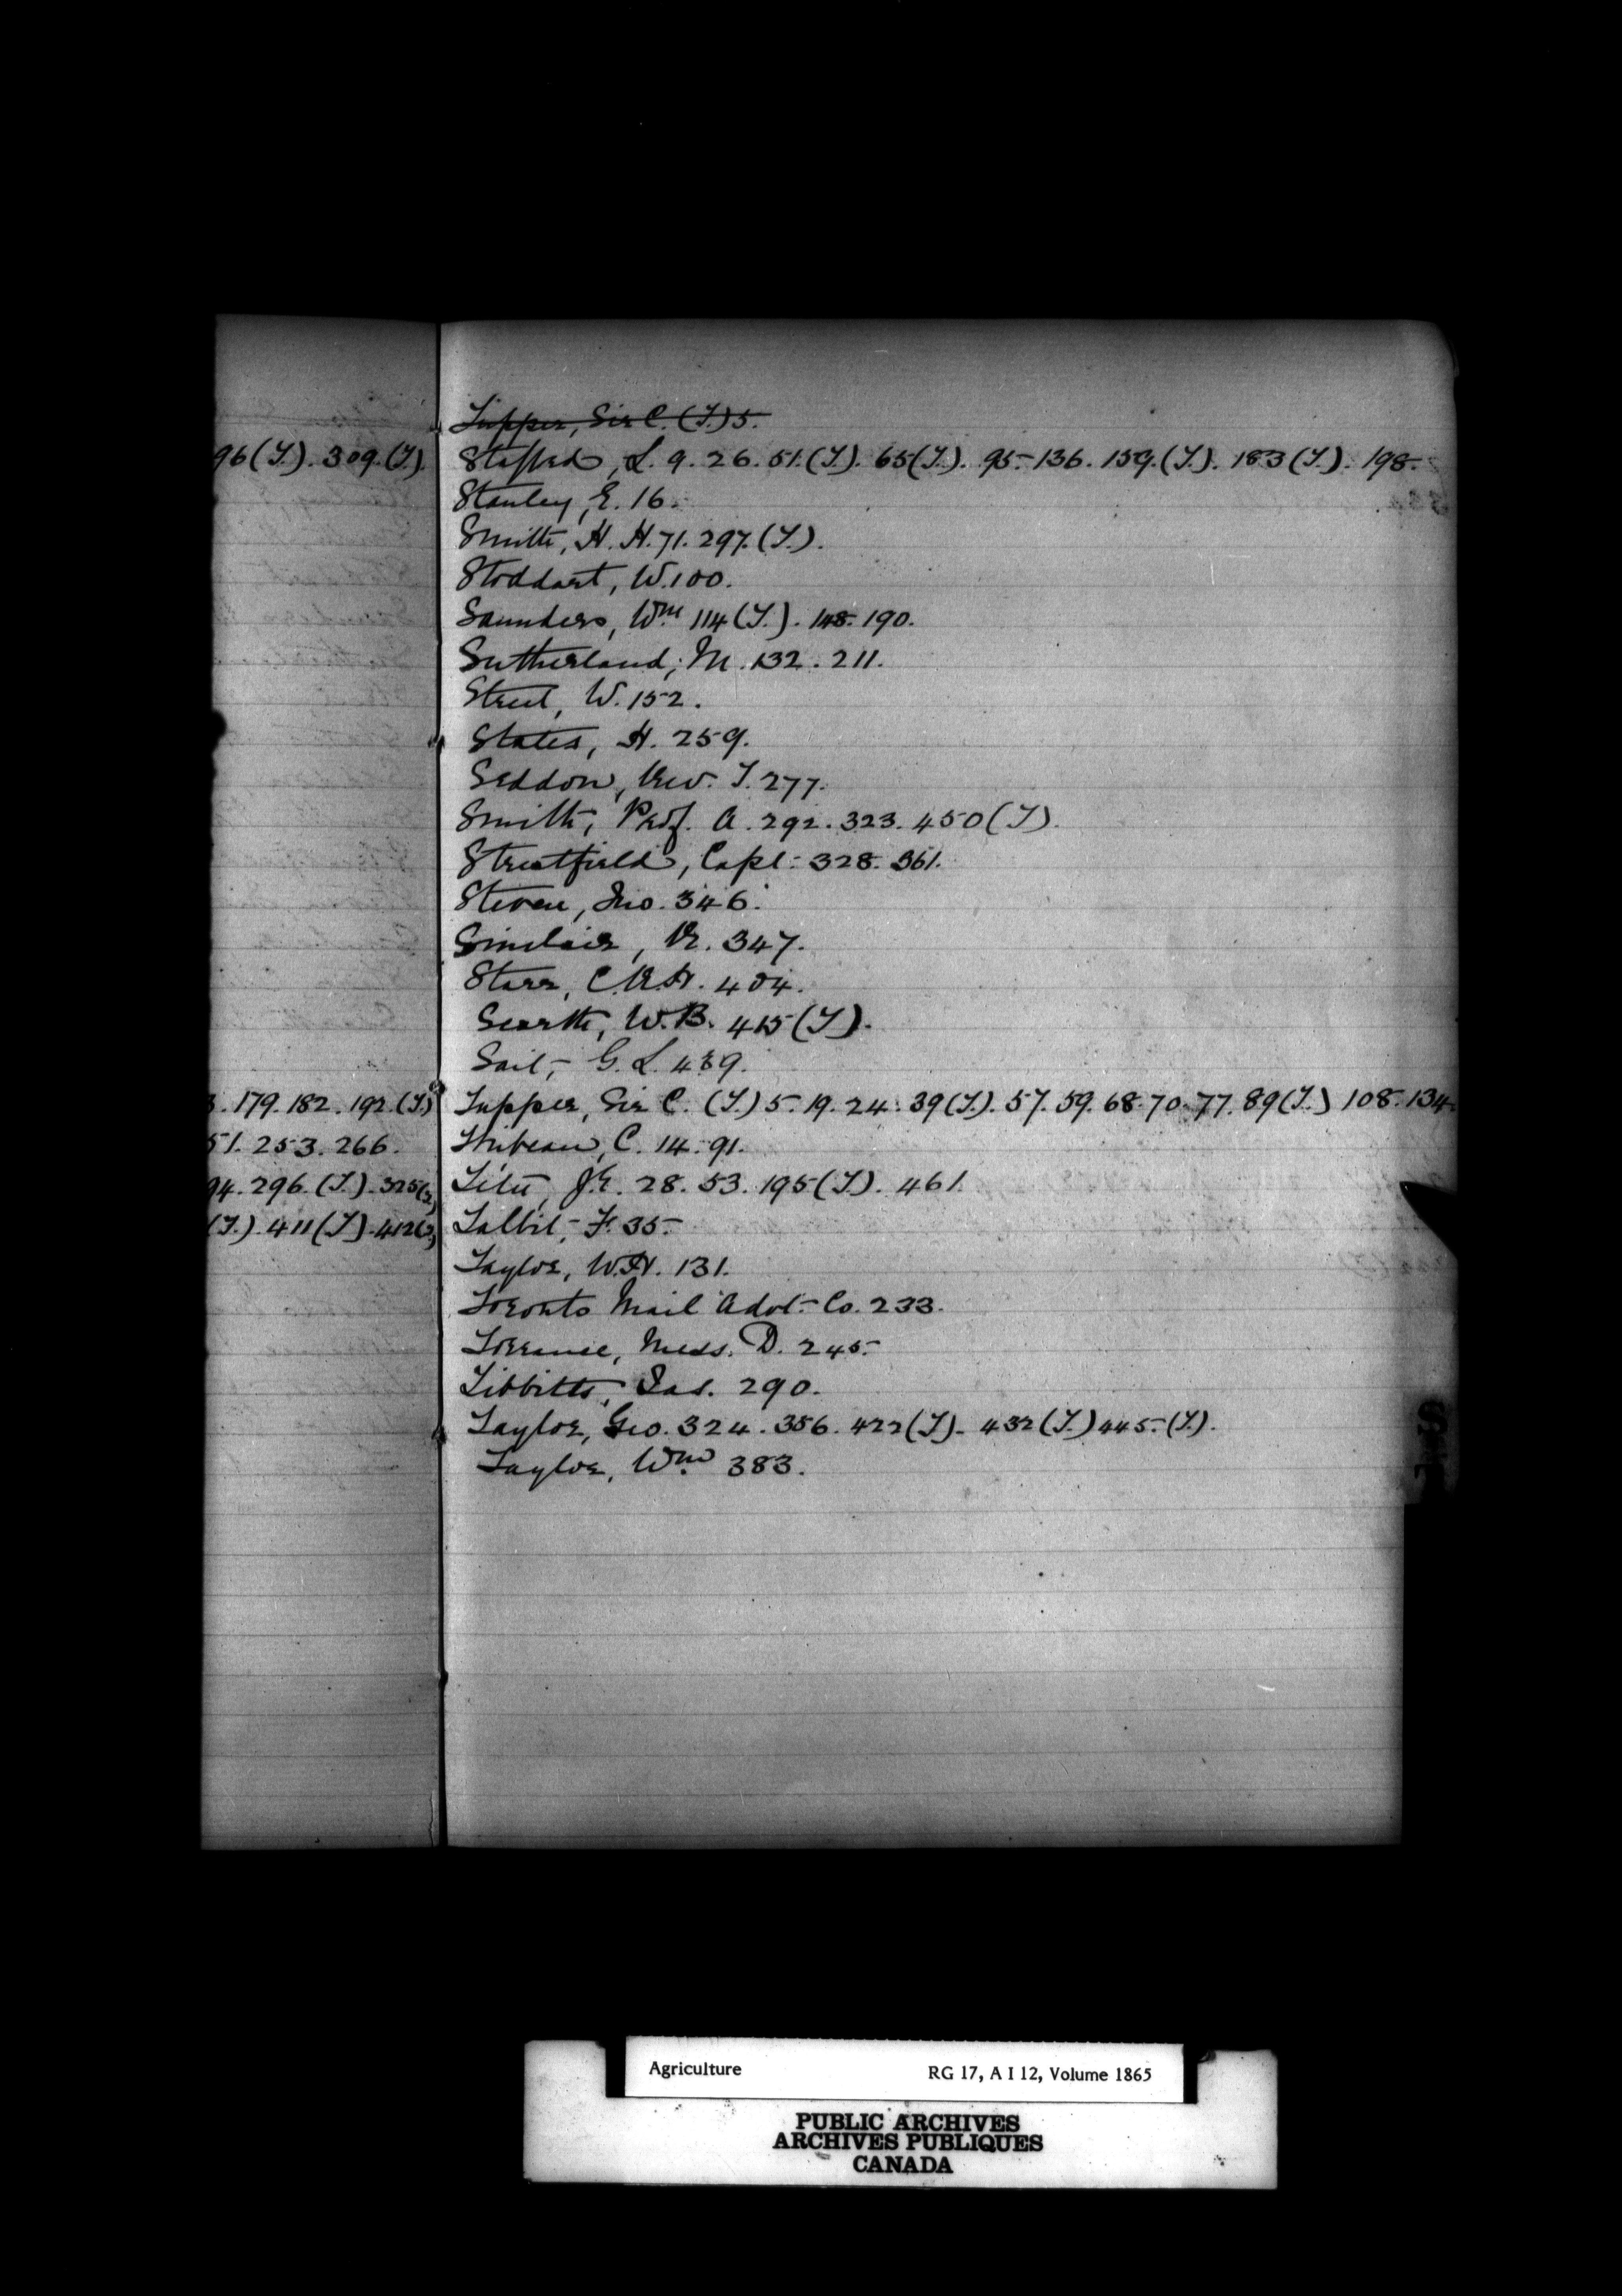 Tupper, Sir C. (T.) 5.
96 (T.). 309. (T.).
Stafford, L. 9. 26. 51. (T.). 65 (T.). 95. 136. 159. (T.). 183 (T.). 198.
Stanley, E. 16.
Smith, H. H. 71. 297. (T.).
Stoddart, W. 100.
Saunders, Wm 114 (T.). 148. 190.
Sutherland, M. 132. 211.
Street, W. 152.
States, H. 259.
Seddon, Rev. T. 277.
Smith, Prof. A. 292. 323. 450 (T).
Streatfield, Capt. 328. 361.
Steven, Jno. 346.
Sinclair, R. 347.
Starr, C. R. H. 404.
Scarth, W. B. 415 (T).
Sait, G. L. 439.
3. 179. 182. 192. (T.)
Tupper, Sir C. (T.) 5. 19. 24. 39 (T.). 57. 59. 68. 70. 77. 89 (T.) 108. 134
51. 253. 266.
Thibeau, C. 14. 91.
94. 296. (T.). 325 (2)
Têtu, J. E. 28. 53. 195 (T.). 461.
(T.). 411 (T). 412
Talbit, F. 35.
Taylor, W. H. 131.
Toronto Mail Advt. Co. 233.
Torrance, Mess. D. 245.
Tibbitts, Jas. 290.
Taylor, Geo. 324. 356. 422 (T). 432 (T.) 445. (T.).
Taylor, Wm 383.
Agriculture
RG 17, A I 12, Volume 1865
PUBLIC ARCHIVES
ARCHIVES PUBLIQUES
CANADA